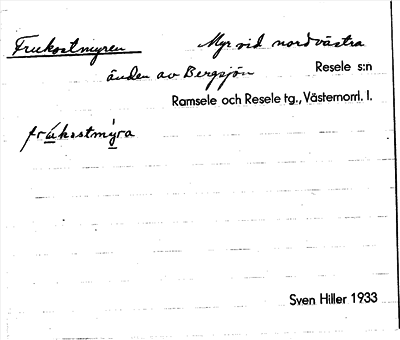 Frukostmyren Myr vid nordvästra
änden av Bergsjön Resele s:n
Ramsele och Resele tg., Västernorrl. l.
frúkostmýra
Sven Hiller 1933